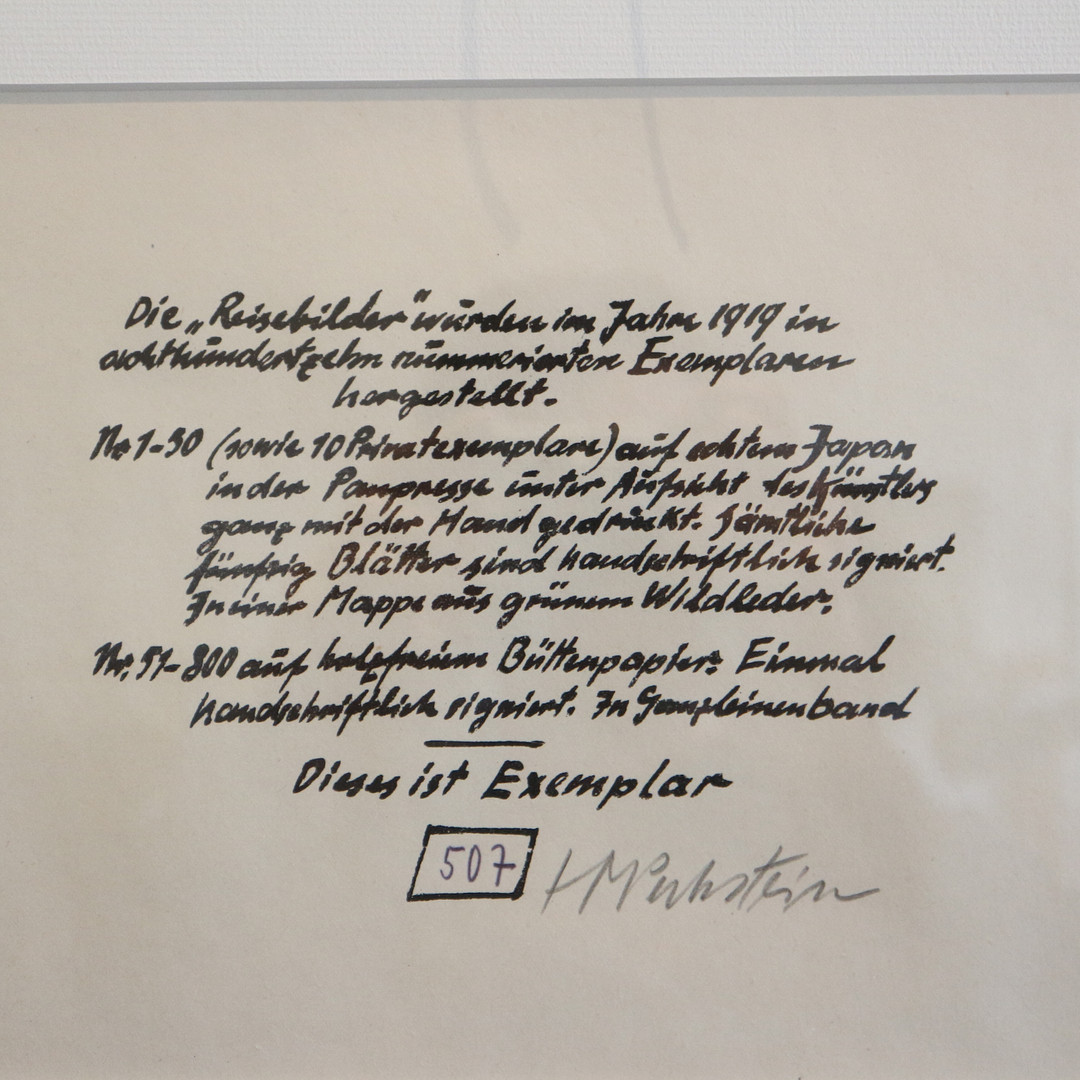 Die „Reisebilder" wurden im Jahre 1919 in
achthundertzehn nummerierten Exemplaren
hergestellt.
Nr. 1-50 (sowie 10 Privatexemplare) auf echtem Japan
in der Panpresse unter Aufsicht des Künstlers
ganz mit der Hand gedruckt. Sämtliche
fünfzig Blätter sind handschriftlich signiert.
In einer Mappe aus grünem Wildleder.
Nr. 51-800 auf holzfreiem Büttenpapier. Einmal
handschriftlich signiert. In Ganzleinenband
Dieses ist Exemplar
507 HMPechstein